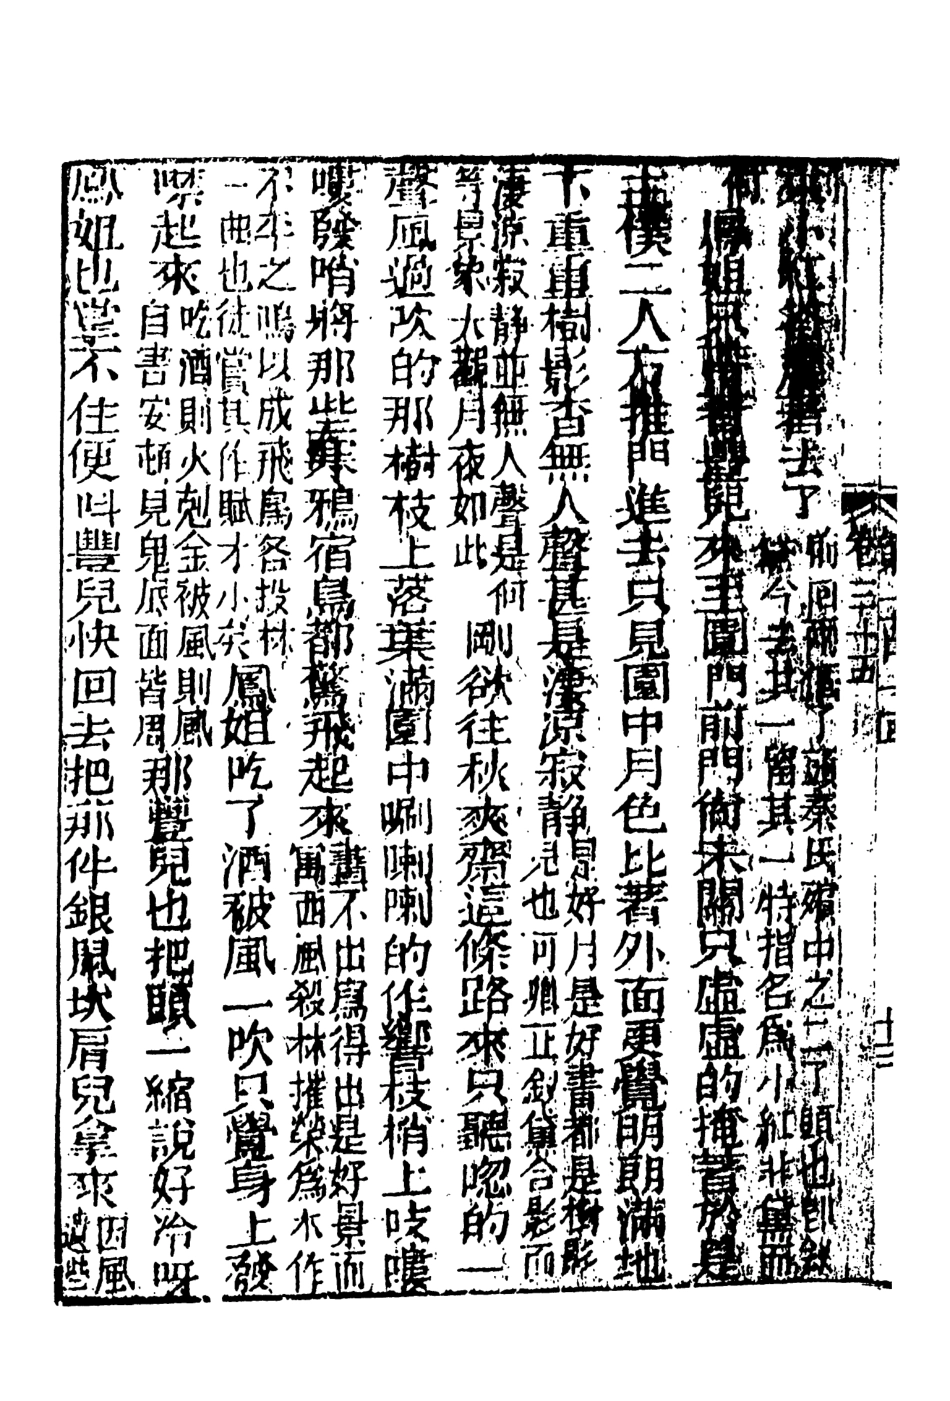 卷三十五
十三
小紅答應著去了
前回兩個丫頭秦氏殯中之二丫頭也卽釵
黛今去其一留其一特指名爲小紅非黛而
何
鳳姐只帶著豐兒來至園門前門尚未關只虛虛的掩着於是
主僕二人方推門進去只見園中月色比著外面更覺明朗滿地
下重重樹影杳無人聲甚是凄凉寂靜
是好月是好書都是樹影
兒也可卿正釵黛合影而
凄凉寂靜並無人聲是何
等景象大觀月夜如此
剛欲往秋爽齋這條路來只聽唿的一
聲風過吹的那樹枝上落葉滿園中唰喇喇的作響枝梢上吱嘍
嘍發哨將那些寒鴉宿鳥都驚飛起來
畫不出寫得出是好景而
寓西風殺林摧榮爲木作
不平之鳴以成飛鳥各投林
一曲也徒嘗其作賦才小矣
鳳姐吃了酒被風一吹只覺身上發
噤起來
吃酒則火剋金被風則風
自害安頓見鬼底面皆周
那豐兒也把頭一縮說好冷呀
鳳姐也掌不住便叫豐兒快回去把那件銀鼠坎肩兒拿來
因風
遺些